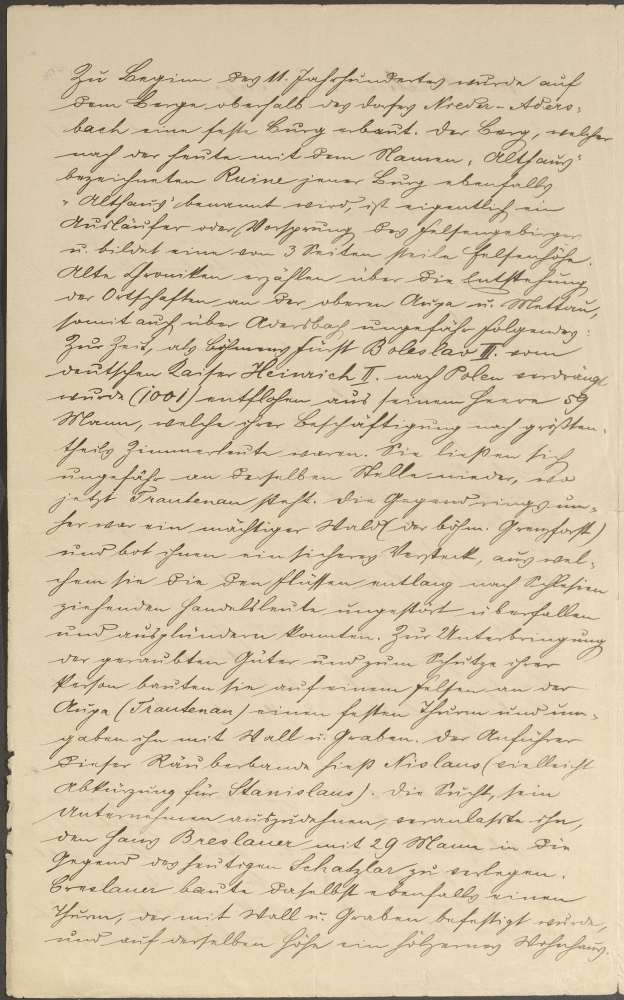 Zu Beginn des 11. Jahrhundertes wurde auf
dem Berge oberhalb des Dorfes Nieder-Aders-
bach eine feste Burg erbaut. Der Berg, welcher
nach der heute mit dem Namen „Althaus“
bezeichneten Ruine jener Burg ebenfalls
„Althaus“ benannt wird, ist eigentlich ein
Ausläufer oder Vorsprung des Felsengebirges
u. bildet eine von 3 Seiten steile Felsenhöhe.
Alte Chroniken erzählen über die Entstehung
der Ortschaften an der oberen Aupa u. Mettau,
somit auch über Adersbach ungefähr folgendes:
Zur Zeit, als Böhmens Fürst Boleslav III. vom
deutschen Kaiser Heinrich II. nach Polen verdrängt
wurde (1001) entflohen aus seinem Heere 59
Mann, welche ihrer Beschäftigung nach größten-
theils Zimmerleute waren. Sie ließen sich
ungefähr an derselben Stelle nieder, wo
jetzt Trautenau steht. Die Gegend rings um-
her war ein mächtiger Wald (der böhm. Grenzforst)
und bot ihnen ein sicheres Versteck, aus wel-
chem sie die den Flüssen entlang nach Schlesien
ziehenden Handelsleute ungestört überfallen
und ausplündern konnten. Zur Unterbringung
der geraubten Güter und zum Schutze ihrer
Person bauten sie auf einem Felsen an der
Aupa (Trautenau) einen festen Thurm und um-
gaben ihn mit Wall u. Graben. Der Anführer
dieser Räuberbande hieß Nislaus (vielleicht
Abkürzung für Stanislaus). Die Sucht, sein
Unternehmen auszudehnen, veranlaßte ihn,
den Hans Breslauer mit 29 Mann in die
Gegend des heutigen Schatzlar zu verlegen.
Breslauer baute daselbst ebenfalls einen
Thurm, der mit Wall u. Graben befestigt wurde,
und auf derselben Höhe ein hölzernes Wohnhaus.